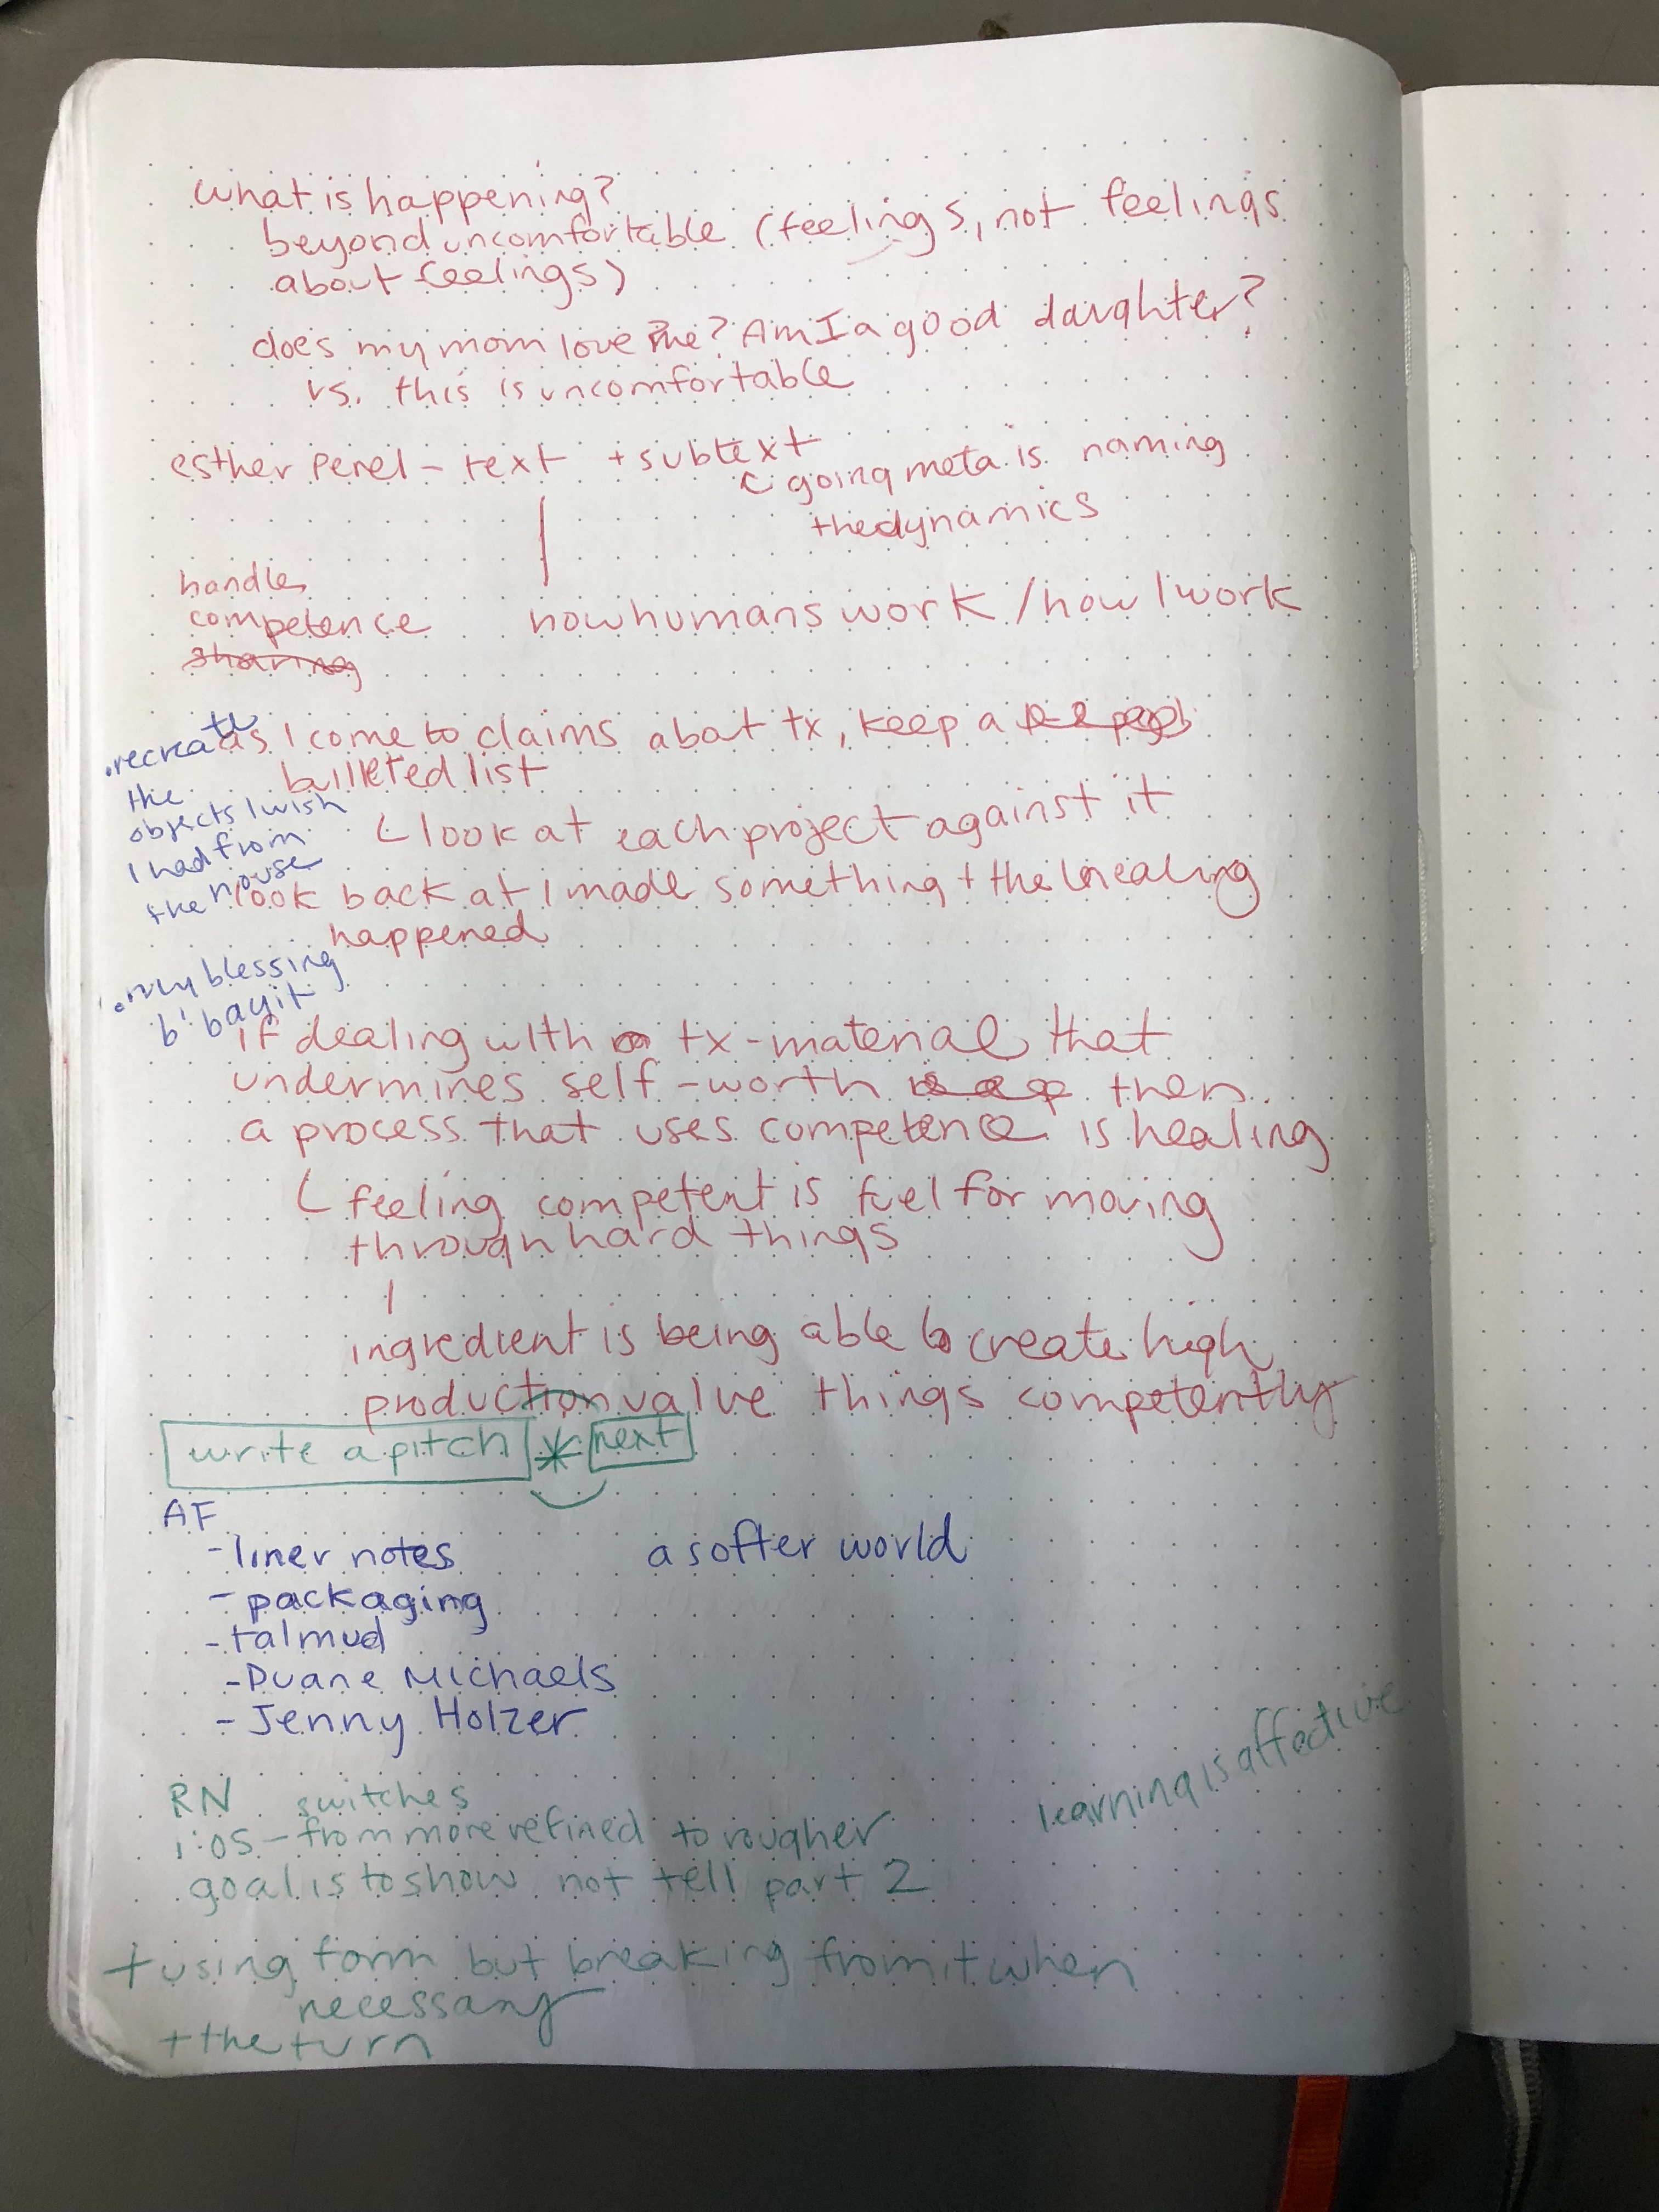 what is happening?
beyond uncomfortable (feelings, not feelings
about feelings)
does my mom love me? Am I a good daughter?
vs. this is uncomfortable
esther perel - text + subtext
going meta is naming
the dynamics
handles
competence
sharing
how humans work / how I work
as I come to claims about tx, keep a
bulleted list
look at each project against it
look back at I made something + the healing
happened
.recreate
the
objects I wish
I had from
the house
.my blessing
b'bayit
if dealing with tx-material that
undermines self-worth then
a process that uses competence is healing
feeling competent is fuel for moving
through hard things
ingredient is being able to create high
production value things competently
write a pitch * next
AF
-liner notes
a softer world
-packaging
-talmud
-Duane Michaels
-Jenny Holzer
learning is affective
RN switches
1:05 - from more refined to rougher
goal is to show not tell part 2
+ using form but breaking from it when
necessary
+ the turn